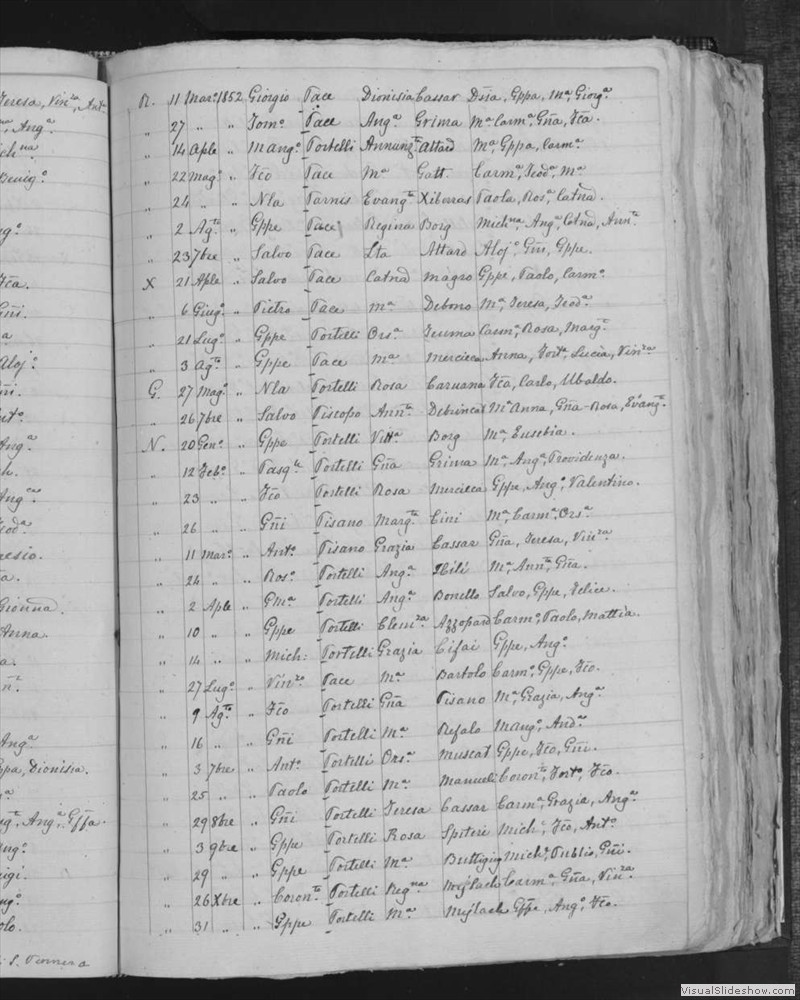 Teresa, Vin.za, Ant.
na, Ang.a
ich.na
Benig.o
ng.o
Fca.
Gñi.
a
Aloj.o
ñi.
nto.
Ang.a
h.
Ang.ca
eod.a
resio.
ta.
Gionna.
Anna.
a.
n.t
Ang.a
ppa, Dionisia.
a
ng.a, Ang.a, Giffa.
ang.o
uigi.
ng.o
olo.
R. 11 Mar.o 1852 Giorgio Pace Dionisia Cassar Dsia, Gppa, M.a, Giorg.a
„ 27 „ „ Tom.o Pace Ang.a Grima M.a Carm.a, Gña, Fca.
„ 14 Aple „ Mang.o Portelli Annunz.ta Attard M.a, Gppa, Carm.a
„ 22 Mag.o „ Fco Pace M.a Gatt Carm.a, Teod.a, M.a
„ 24 „ „ Nla Parnis Evang.ta Xiberras Paola, Ros.a, Catna.
„ 2 Ag.to „ Gppe Pace Regina Borg Mich.na, Ang.a, Catna, Ann.ta
„ 23 7bre „ Salvo Pace Lta Attard Aloj.o, Gñi, Gppe.
X 21 Aple „ Salvo Pace Catna Magro Gppe, Paolo, Carm.o
„ 6 Giug.o „ Pietro Pace M.a Debono M.a, Teresa, Teod.a
„ 21 Lug.o „ Gppe Portelli Ors.a Teuma Carm.a, Rosa, Marg.ta
„ 3 Ag.to „ Gppe Pace M.a Mercieca Anna, Fort.a, Lucia, Vin.za
G. 27 Mag.o „ Nla Portelli Rosa Caruana Fca, Carlo, Ubaldo.
„ 26 7bre „ Salvo Piscopo Ann.ta Debrincat M.a Anna, Gña-Rosa, Evang.ta
N. 20 Gen.o „ Gppe Portelli Vitt.a Borg M.a, Eusebia.
„ 12 Feb.o „ Pasq.le Portelli Gña Grima M.a, Ang.a, Providenza.
„ 23 „ „ Fco Portelli Rosa Mercieca Gppe, Ang.o, Valentino.
„ 26 „ „ Gñi Pisano Marg.ta Cini M.a, Carm.a, Ors.a
„ 11 Mar.o „ Ant.o Pisano Grazia Cassar Gña, Teresa, Vin.za
„ 24 „ „ Ros.o Portelli Ang.a Xbili M.a, Ann.ta, Gña.
„ 2 Aple „ Gma Portelli Ang.a Bonello Salvo, Gppe, Felice.
„ 10 „ „ Gppe Portelli Clem.za Azzopard Carm.o, Paolo, Mattia.
„ 14 „ „ Mich: Portelli Grazia Cifai Gppe, Ang.o
„ 27 Lug.o „ Vin.zo Pace M.a Bartolo Carm.o, Gppe, Fco.
„ 9 Ag.to „ Fco Portelli Gña Pisano M.a, Grazia, Ang.a
„ 16 „ „ Gñi Portelli M.a Refalo Mang.o, And.a
„ 3 7bre „ Ant.o Portelli Ors.a Muscat Gppe, Fco, Gñi.
„ 25 „ „ Paolo Portelli M.a Manueli Coron.to, Fort.o, Fco.
„ 29 8bre „ Gñi Portelli Teresa Cassar Carm.a, Grazia, Ang.a
„ 3 9bre „ Gppe Portelli Rosa Spiteri Mich.e, Fco, Ant.o
„ 29 „ „ Gppe Portelli M.a Buttigieg Mich.e, Publio, Gñi.
„ 26 Xbre „ Coron.to Portelli Reg.na Mejlach Carm.a, Gña, Vin.za
„ 31 „ „ Gppe Portelli M.a Mejlach Gppe, Ang.o, Fco.
VisualSlideshow.com